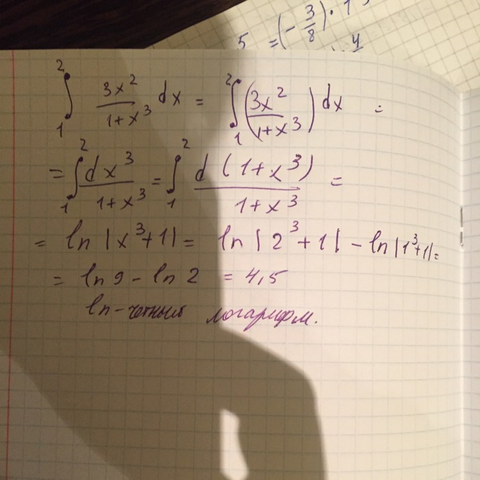 5 = (-3/8) · 1
4
∫₁² 3x²/(1+x³) dx = ∫₁² (3x²/(1+x³)) dx =
= ∫₁² dx³/(1+x³) = ∫₁² d(1+x³)/(1+x³) =
= ln |x³+1| = ln |2³+1| - ln |1³+1| =
= ln 9 - ln 2 = 4,5
ln - четный логарифм.